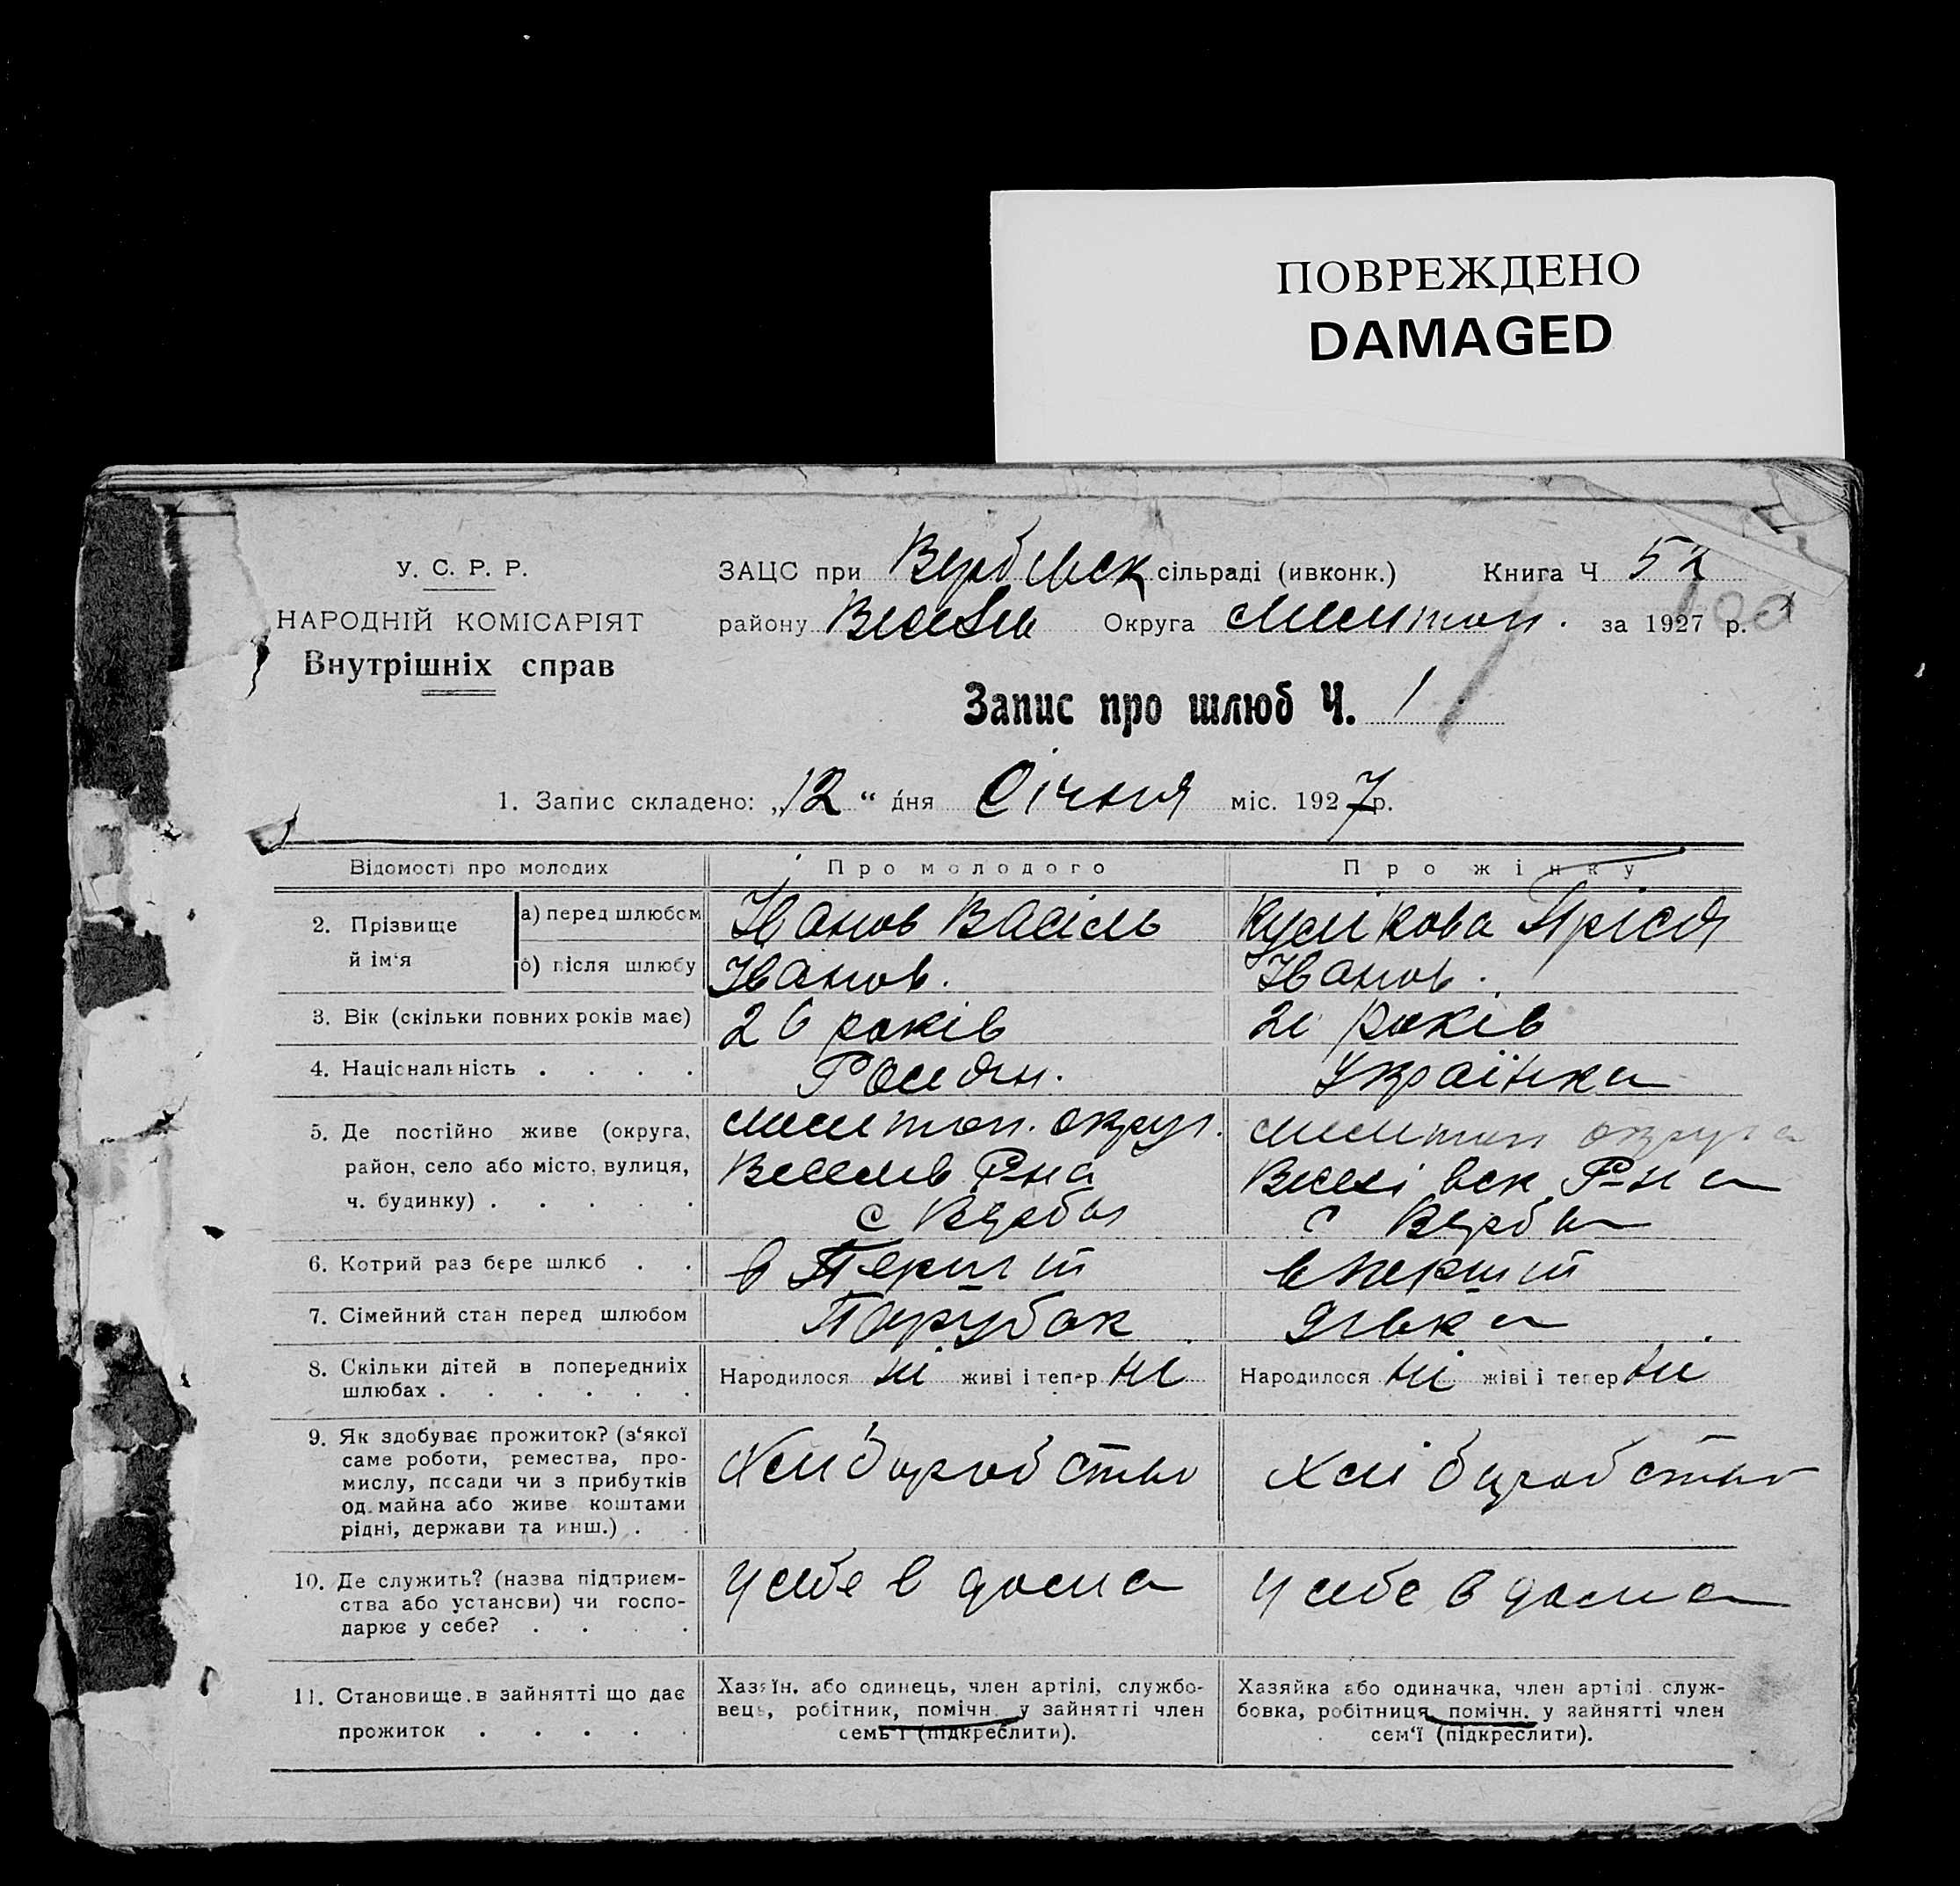 ПОВРЕЖДЕНО
DAMAGED
У. С. Р. Р.
НАРОДНІЙ КОМІСАРІЯТ
Внутрішніх справ
ЗАЦС при Вербівск сільраді (ивконк.) Книга Ч 52
району Весели Округа Мелитоп. за 1927 р.
Запис про шлюб Ч. 1
1. Запис складено: „12“ дня Січня міс. 1927 р.
Відомості про молодих Про молодого Про жінку
2. Прізвище й ім‘я
а) перед шлюбом Іванов Васіль Кулікова Аріся
б) після шлюбу Іванов. Іванов.
3. Вік (скільки повних років має) 26 років 21 років
4. Національність . . . . Росиян. Українка
5. Де постійно живе (округа, Мелитоп. округ. Мелитоп округа
район, село або місто, вулиця, Веселів Р-на Веселівск Р-на
ч. будинку) . . . . . с Верба с Верба
6. Котрий раз бере шлюб . . в Перший в Перший
7. Сімейний стан перед шлюбом Парубок дівка
8. Скільки дітей в попередниіх
шлюбах . . . . . . Народилося ні живі і тепер ні Народилося ні жіві і тепер ні
9. Як здобуває прожиток? (з‘якої
саме роботи, ремества, про-
мислу, посади чи з прибутків Хлібаробство Хлібаробство
од майна або живе коштами
рідні, держави та инш.) . .
10. Де служить? (назва підприєм-
ства або установи) чи госпо- у себе в дома у себе в дома
дарює у себе? . . . .
11. Становище в зайнятті що дає
прожиток . . . . .
Хазяїн або одинець, член артілі, службо-
вець, робітник, помічн. у зайнятті член
семь‘ї (підкреслити).
Хазяйка або одиначка, член артілі служ-
бовка, робітниця помічн. у зайнятті член
сем‘ї (підкреслити).